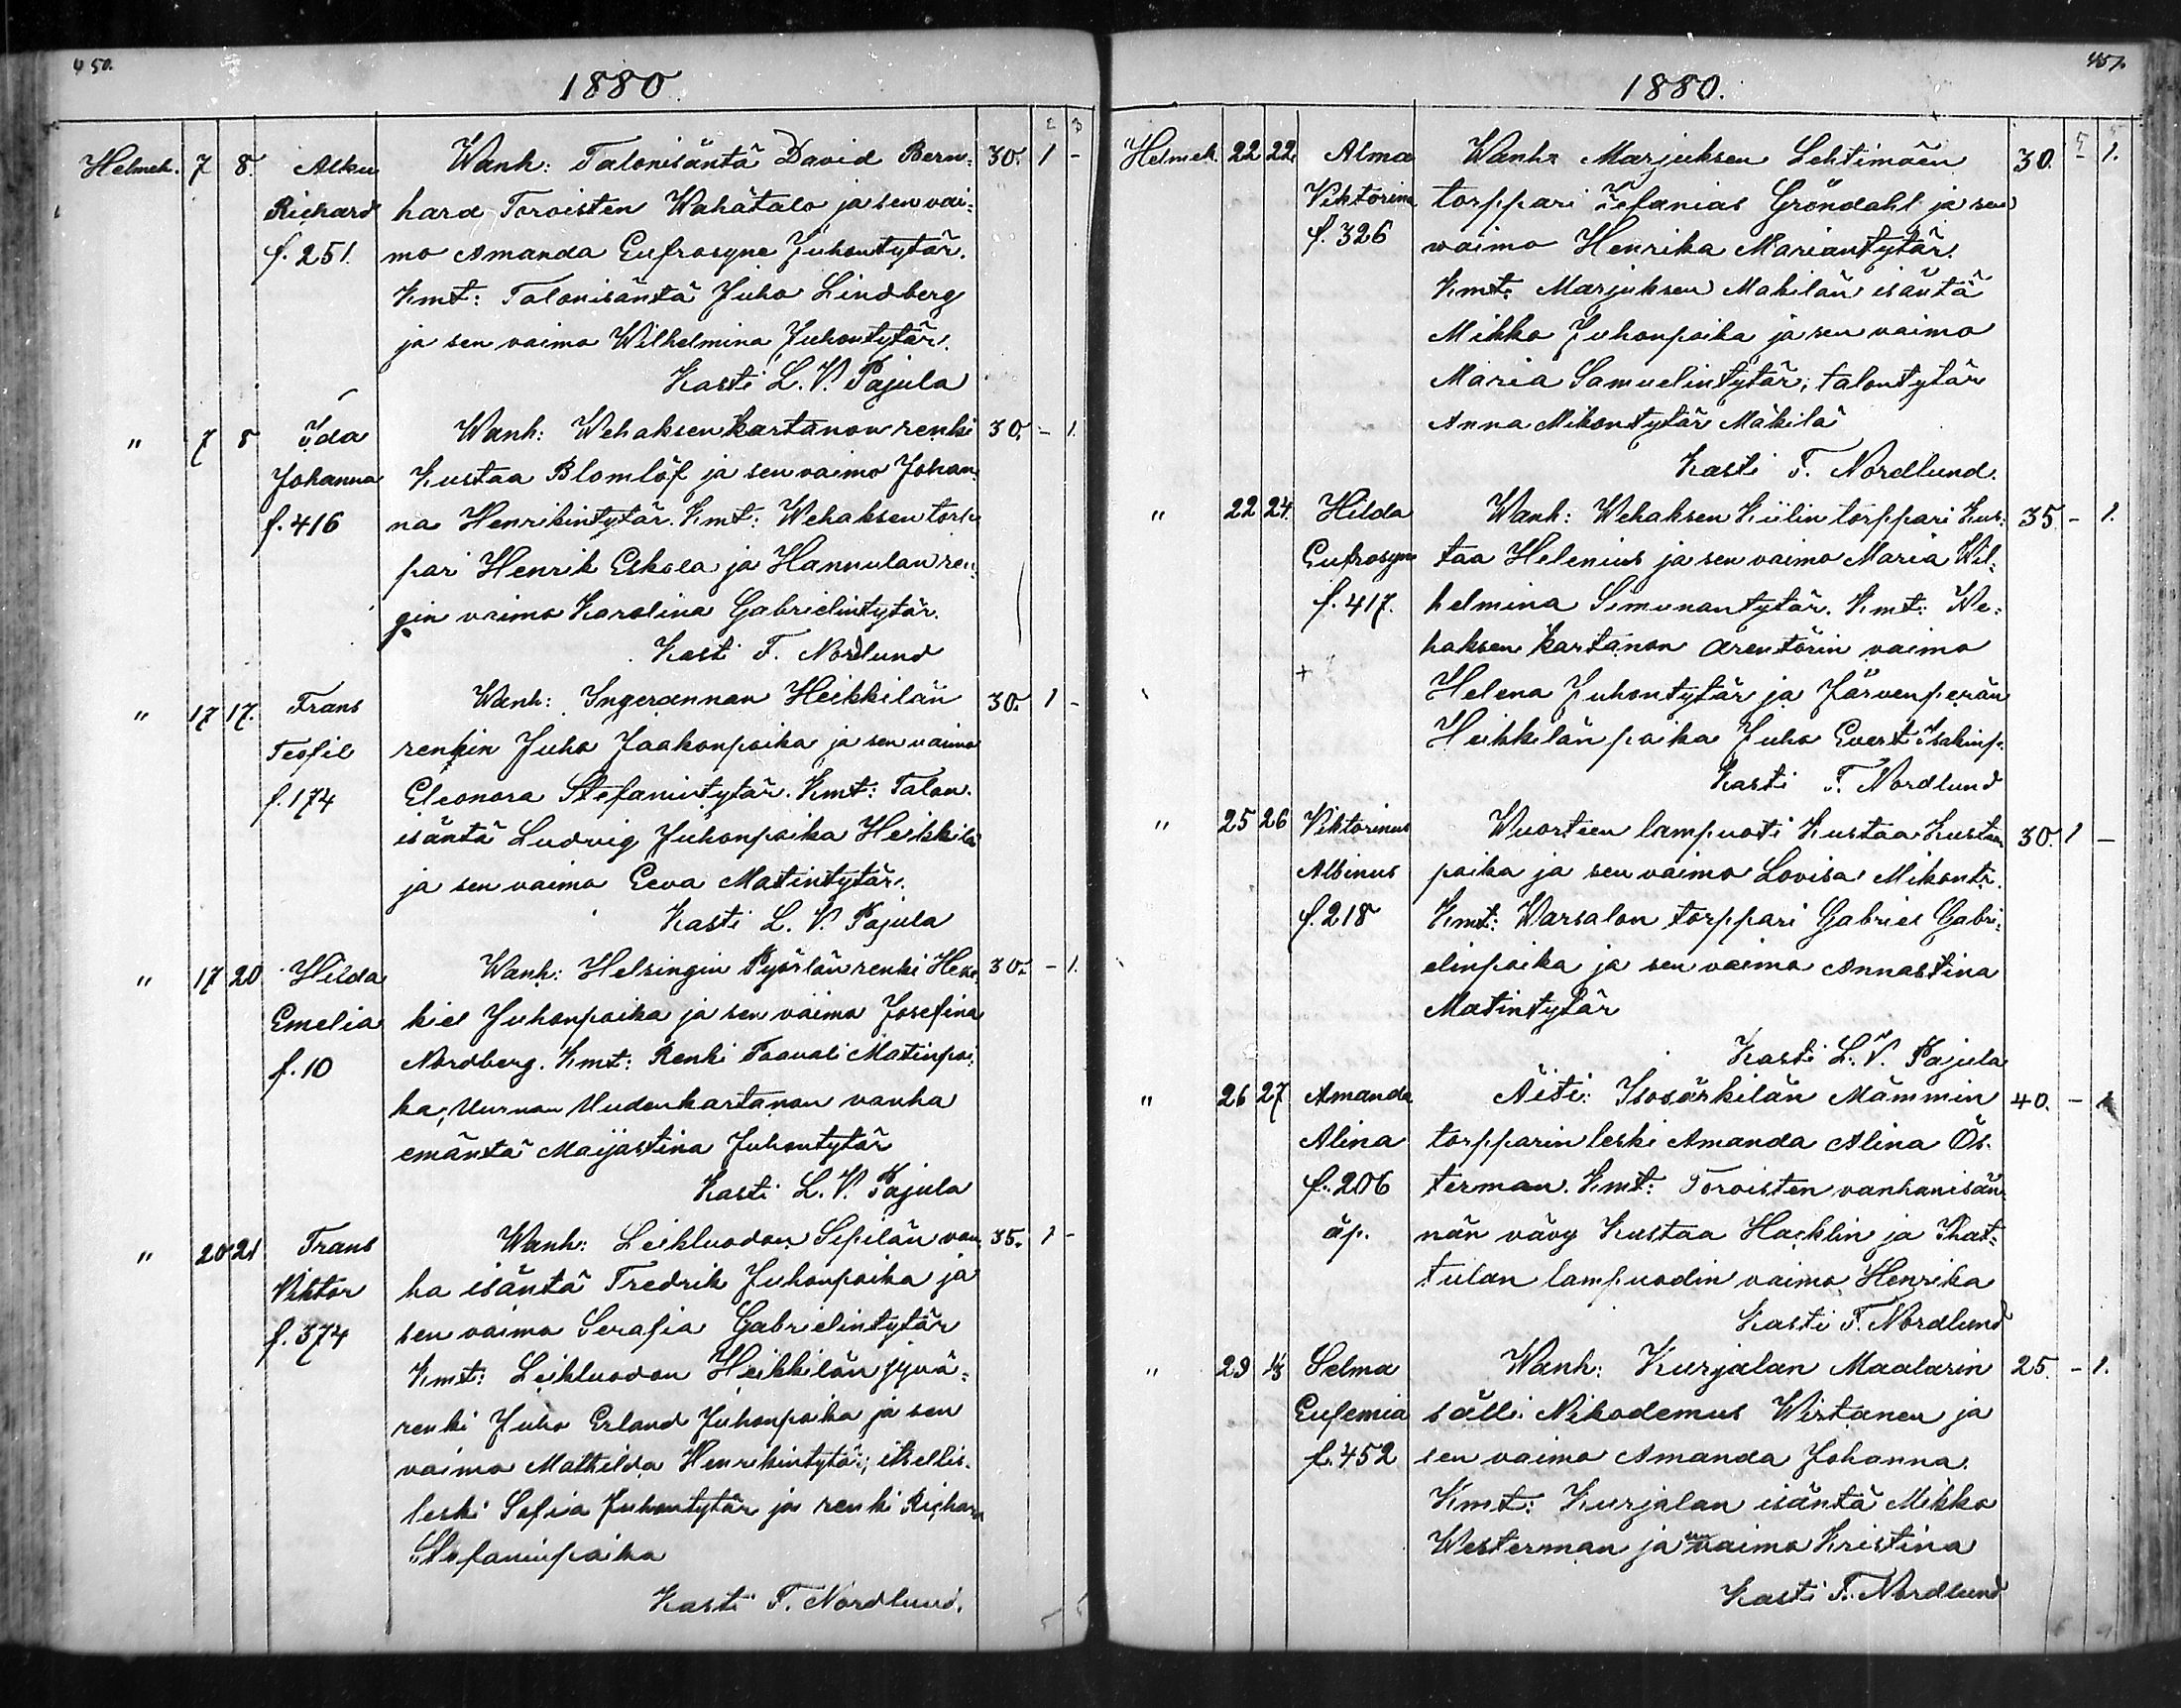 450.
1880.
2 3
Helmek. 7 8. Alku Wanh: Talonisäntä David Bern- 30. 1 -
Richard hard Toroisten Wähätalo ja sen vai-
f. 251. mo Amanda Eufrosyne Juhontytär.
Kmt: Talonisäntä Juho Lindberg
ja sen vaimo Wilhelmina Juhontytär.
Kasti L. V. Pajula
" 7 8 Ida Wanh: Wehaksen Kartanon renki 30. - 1.
Johanna Kustaa Blomlöf ja sen vaimo Johan-
f. 416 na Henrikintytär. Kmt: Wehaksen torp-
pari Henrik Eskola ja Hannulan ren-
gin vaimo Karolina Gabrielintytär.
Kasti F. Nordlund
" 17 17. Frans Wanh: Ingerannan Heikkilän 30. 1 -
Teofil renkin Juho Jaakonpoika ja sen vaimo
f. 174 Eleonora Stefanintytär. Kmt: Talon-
isäntä Ludvig Juhonpoika Heikkilä
ja sen vaimo Eeva Matintytär.
Kasti L. V. Pajula
" 17 20 Hilda Wanh: Helsingin Pyörlän renki Hese- 30. - 1.
Emelia kiel Juhonpoika ja sen vaimo Josefina
f. 10 Nordberg. Kmt: Renki Taavali Matinpoi-
ka, Uudenkartanon vanha
emäntä Maijastina Juhontytär
Kasti L. V. Pajula
" 20 21 Frans Wanh: Leikluodon Sepilän van- 35. 1 -
Viktor ha isäntä Fredrik Juhonpoika ja
f. 374 sen vaimo Serafia Gabrielintytär
Kmt: Leikluodon Heikkilän jyvä-
renki Juho Erland Juhonpoika ja sen
vaimo Mathilda Henrikintytär; itsellis-
leski Sofia Juhontytär ja renki Richard
Stefaninpoika
Kasti F. Nordlund.
451.
1880.
5 5
Helmek. 22 22. Alma Wanh: Marjuksen Lehtimäen 30. - 1.
Viktorina torppari Sefanias Gröndahl ja sen
f. 326 waimo Henrika Mariantytär.
Kmt: Marjuksen Mäkilän isäntä
Mikko Juhonpoika ja sen vaimo
Maria Samuelintytär; talontytär
Anna Mikontytär Mäkilä
Kasti F. Nordlund.
" 22 24. Hilda Wanh: Wehaksen Kiilin torppari Kus- 35. - 1.
Eufrosyne taa Helenius ja sen vaimo Maria Wil-
f. 417. helmina Simunantytär. Kmt: We-
haksen Kartanon arentörin vaimo
Helena Juhontytär ja Järvenperän
Heikkilän poika Juho Evert Isakinp.
Kasti F. Nordlund
" 25 26 Viktorinus Wuorteen lampuoti Kustaa Kustaan 30. 1 -
Albinus poika ja sen vaimo Lovisa Mikontr.
f. 218 Kmt: Warsalon torppari Gabriel Gabri-
elinpoika ja sen vaimo Annastina
Matintytär
Kasti L. V. Pajula
" 26 27 Amanda Äiti: Isosärkilän Mämmin 40. - 1.
Alina torpparin leski Amanda Alina Ös-
f. 206 terman. Kmt: Toroisten vanhanisän-
äp. nän vävy Kustaa Hacklin ja Khat-
tulan lampuodin vaimo Henrika
Kasti F. Nordlund
" 29 1/3 Selma Wanh: Kurjalan Maalarin 25. - 1.
Eufemia sälli Nikodemus Wirtanen ja
f. 452 sen vaimo Amanda Johanna.
Kmt: Kurjalan isäntä Mikko
Westerman ja sen vaimo Kristina
Kasti F. Nordlund